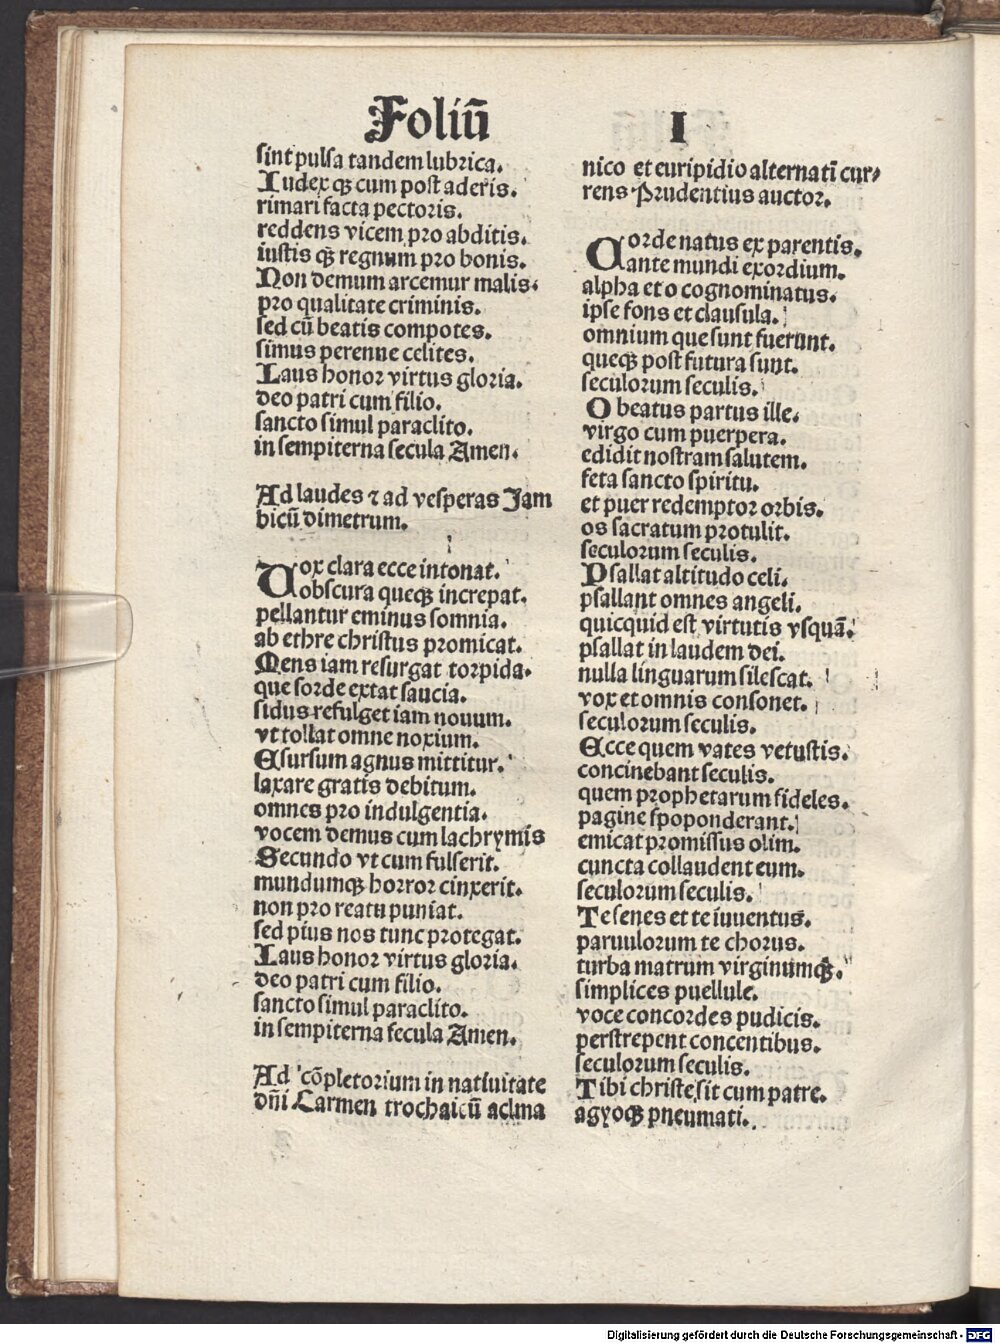 Foliū I
sint pulsa tandem lubrica.
Iudex qꝫ cum post aderis.
rimari facta pectoris.
reddens vicem pro abditis.
iustis qꝫ regnum pro bonis.
Non demum arcemur malis.
pro qualitate criminis.
sed cū beatis compotes.
simus perenne celites.
Laus honor virtus gloria.
deo patri cum filio.
sancto simul paraclito.
in sempiterna secula Amen.
Ad laudes ⁊ ad vesperas Jam
bicū dimetrum.
Vox clara ecce intonat.
obscura queqꝫ increpat.
pellantur eminus somnia.
ab ethre christus promicat.
Mens iam resurgat torpida.
que sorde extat saucia.
sidus refulget iam nouum.
vt tollat omne noxium.
Esursum agnus mittitur.
laxare gratis debitum.
omnes pro indulgentia.
vocem demus cum lachrymis
Secundo vt cum fulserit.
mundumqꝫ horror cinxerit.
non pro reatu puniat.
sed pius nos tunc protegat.
Laus honor virtus gloria.
deo patri cum filio.
sancto simul paraclito.
in sempiterna secula Amen.
Ad cōpletorium in natiuitate
dñi Carmen trochaicū aclma
nico et euripidio alternatī cur⸗
rens Prudentius auctor.
Corde natus ex parentis.
ante mundi exordium.
alpha et o cognominatus.
ipse fons et clausula.
omnium que sunt fuerunt.
queqꝫ post futura sunt.
seculorum seculis.
O beatus partus ille.
virgo cum puerpera.
edidit nostram salutem.
feta sancto spiritu.
et puer redemptor orbis.
os sacratum protulit.
seculorum seculis.
Psallat altitudo celi.
psallant omnes angeli.
quicquid est virtutis vsquā.
psallat in laudem dei.
nulla linguarum silescat.
vox et omnis consonet.
seculorum seculis.
Ecce quem vates vetustis.
concinebant seculis.
quem prophetarum fideles.
pagine spoponderant.
emicat promissus olim.
cuncta collaudent eum.
seculorum seculis.
Te senes et te iuuentus.
paruulorum te chorus.
turba matrum virginumqꝫ.
simplices puellule.
voce concordes pudicis.
perstrepent concentibus.
seculorum seculis.
Tibi christe sit cum patre.
agyoqꝫ pneumati.
Digitalisierung gefördert durch die Deutsche Forschungsgemeinschaft - DFG